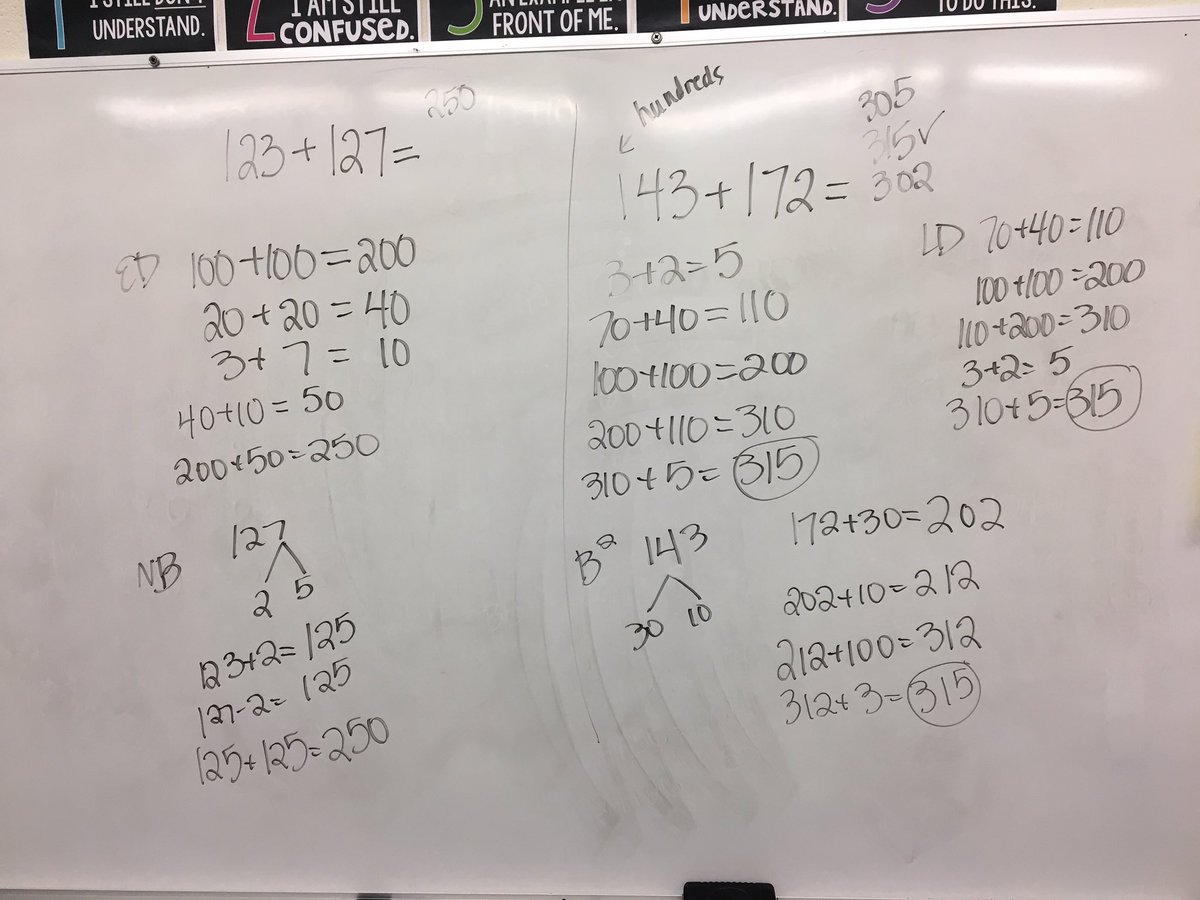 1 I STILL DON'T
UNDERSTAND.
2 I AM STILL
CONFUSED.
3
FRONT OF ME.
UNDERSTAND.
TO DO THIS.
250
123+127=
ED 100+100=200
20+20=40
3+7=10
40+10=50
200+50=250
NB 127
2 5
123+2=125
127-2=125
125+125=250
hundreds
305
315✓
143+172= 302
3+2=5
70+40=110
100+100=200
200+110=310
310+5=315
LD 70+40=110
100+100=200
110+200=310
3+2=5
310+5=315
B² 143
30 10
172+30=202
202+10=212
212+100=312
312+3=315